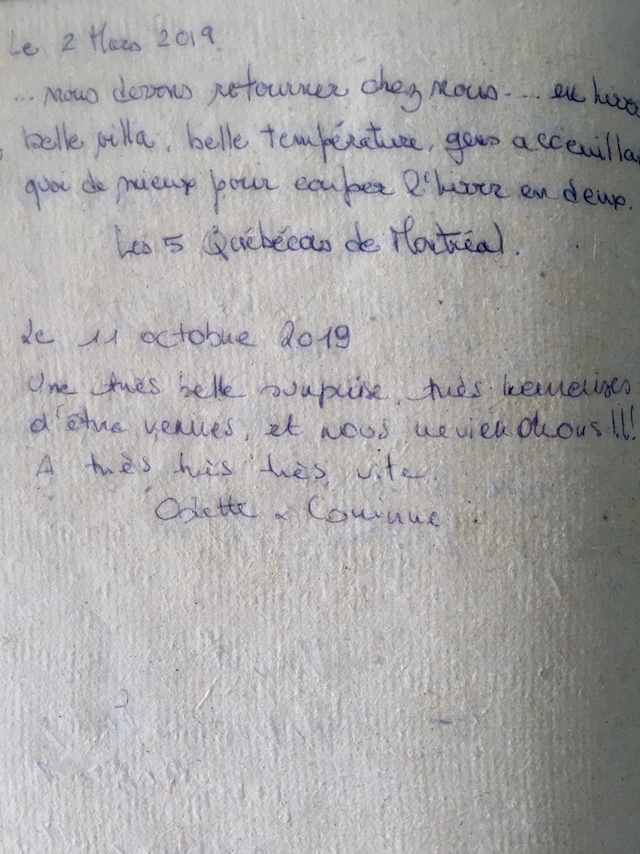 Le 2 Mars 2019
... nous devons retourner chez nous.... en hiver
belle villa, belle température, gens acceuillan
quoi de mieux pour couper l'hiver en deux.
Les 5 Québécois de Montréal.
Le 11 octobre 2019
Une très belle surprise, très heureuses
d'être venues, et nous reviendrons!!!
A très très très vite.
Odette & Corinne